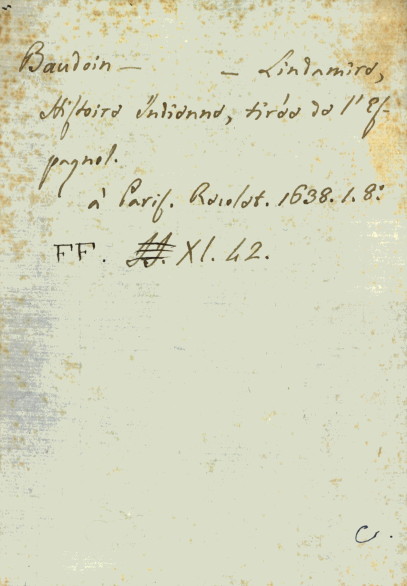 Baudoin — — Lindamire,
Histoire Indienne, tirée de l'Es-
pagnol.
à Paris. Rocolet. 1638. 1. 8º
FF. XI. 42.
C.